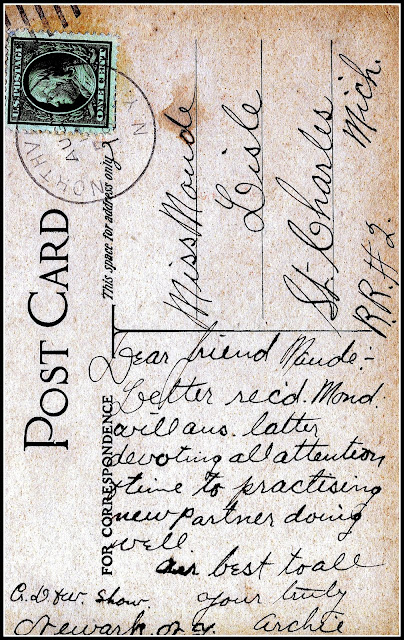 U.S. POSTAGE
ONE CENT
NORTHV
AUG
N.Y.
POST CARD
This space for address only
FOR CORRESPONDENCE
Miss Maude
Lisle
St. Charles
Mich.
R.R.#2.
Dear friend Maude:-
Letter rec'd. Mond.
will ans. latter
devoting all attention
& time to practising
new partner doing
well
best to all
your truly
Archie
show
Newark. N.Y.